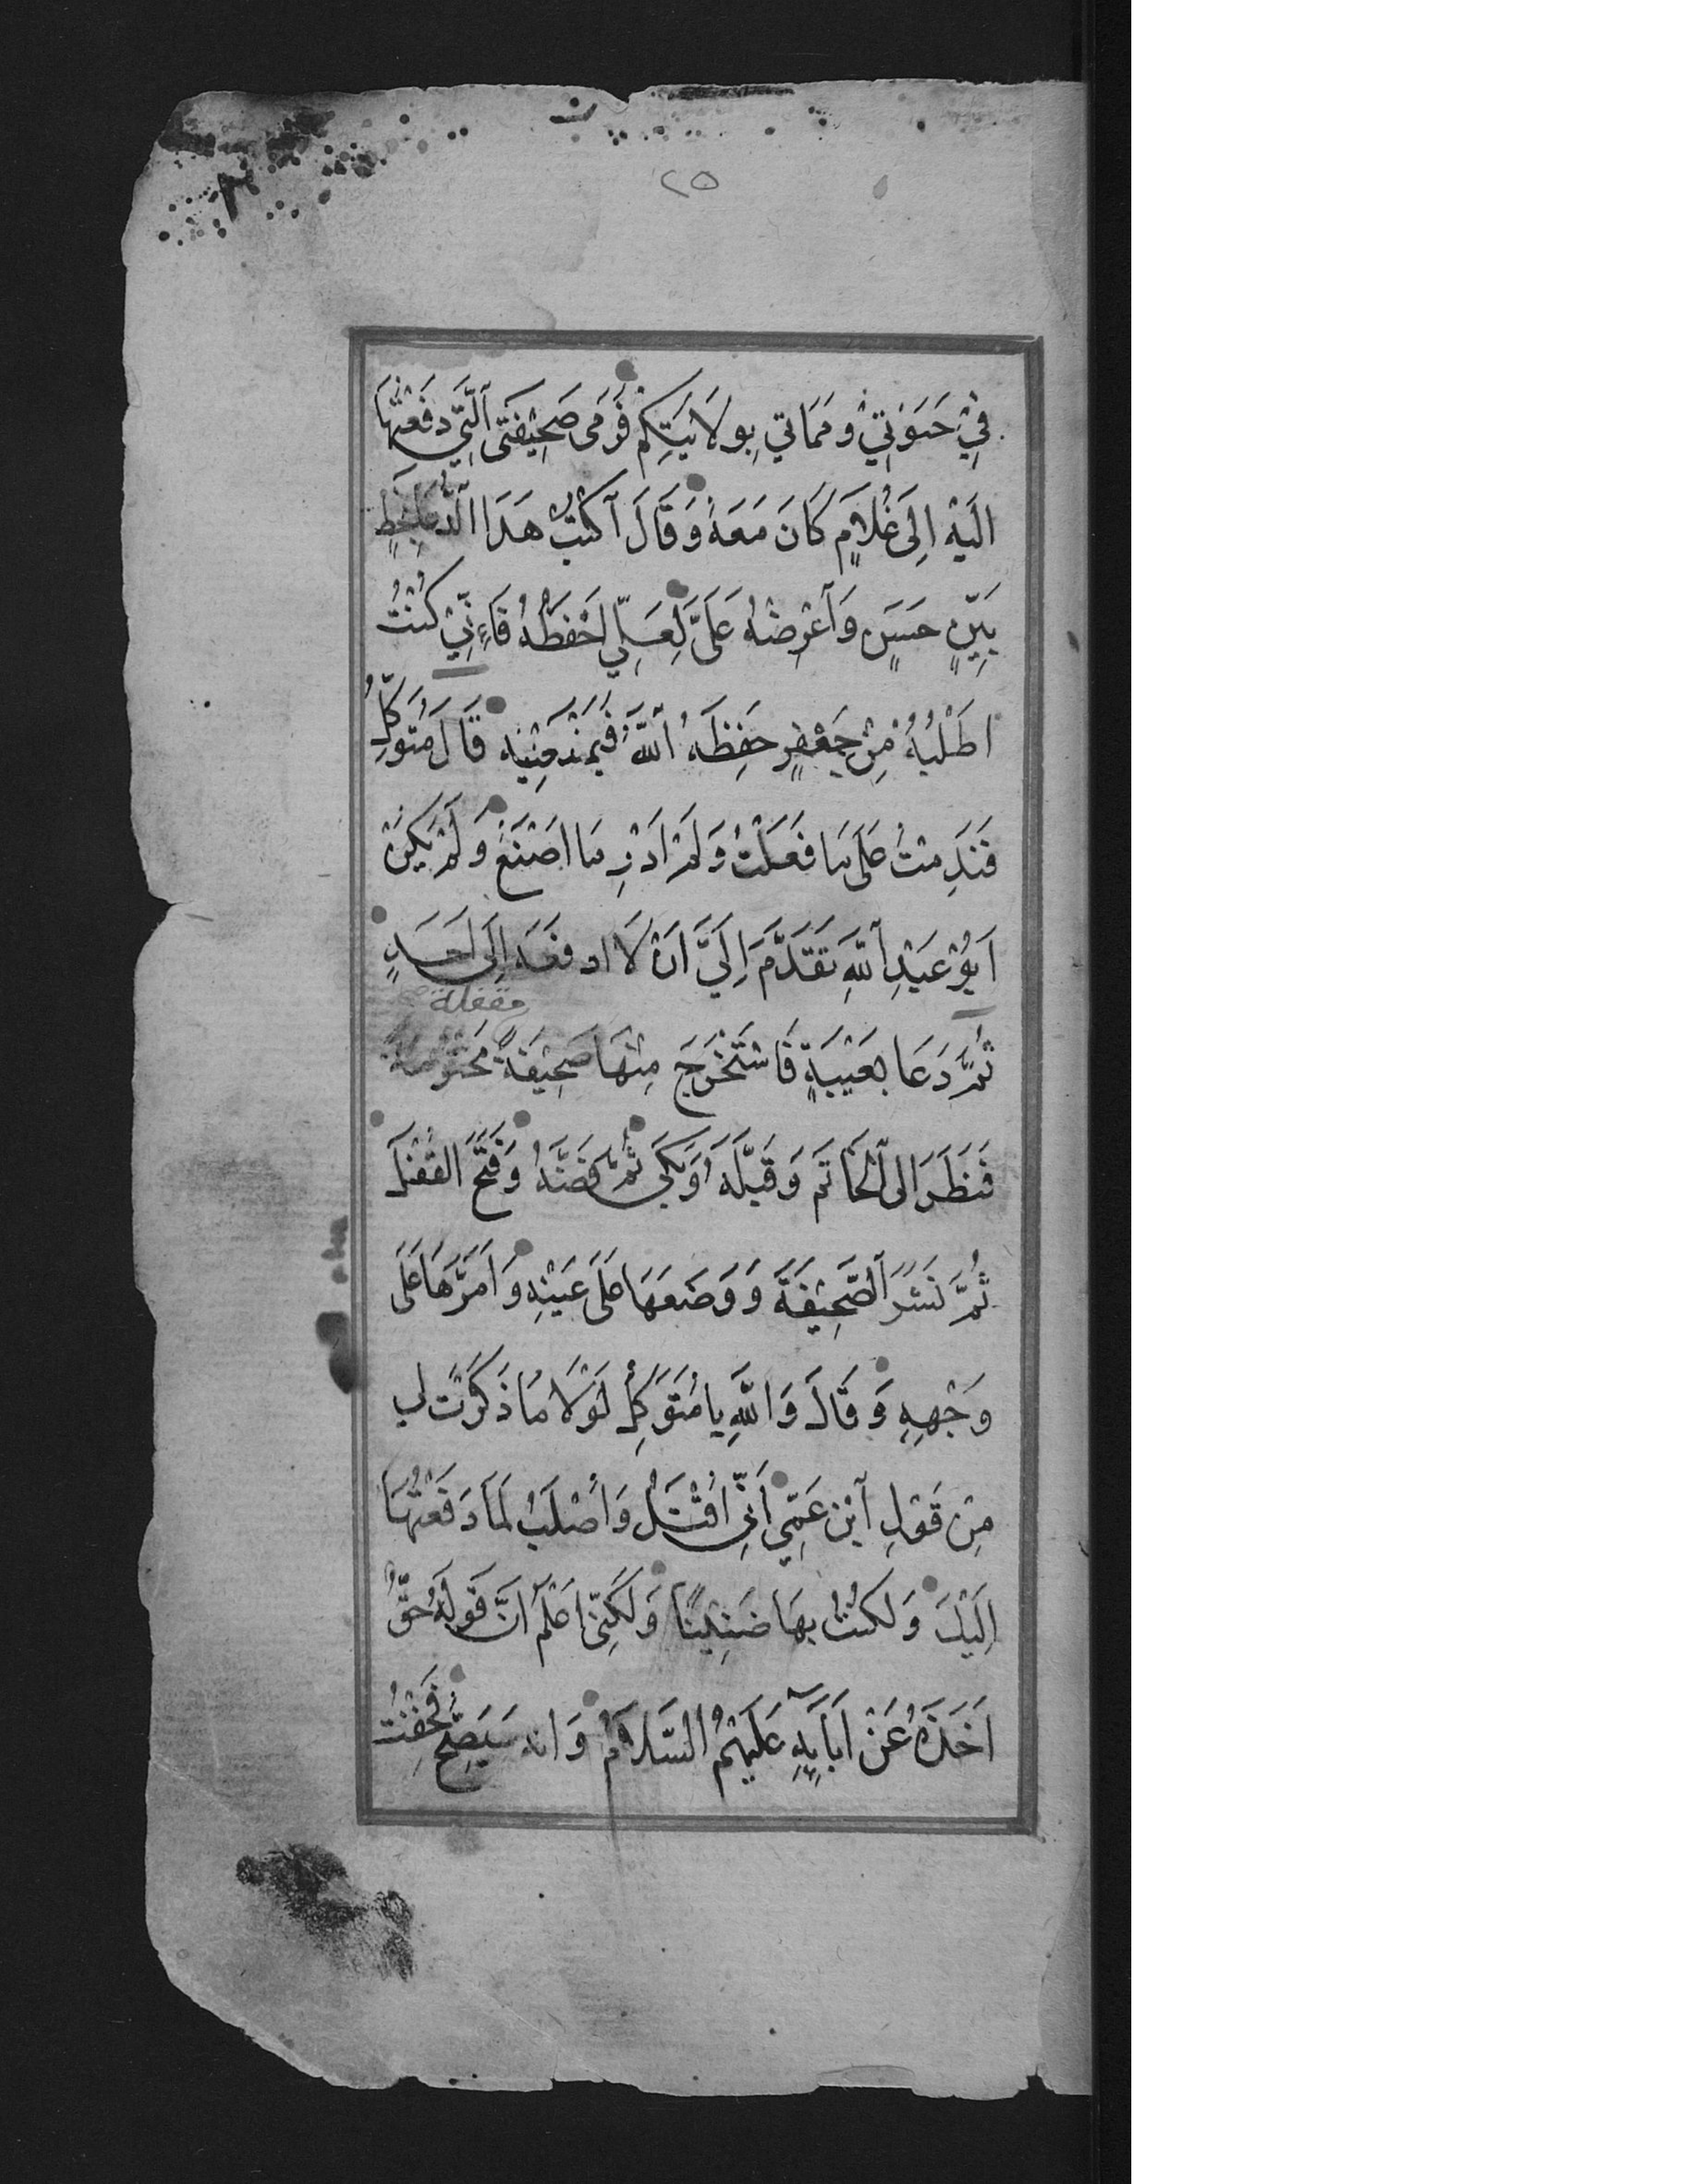 ٢٥
فِيْ حَيَوٰتِيْ وَمَمَاتِي بِوِلَايَتِكُم فَرَمٰى صَحِيْفَتِى ٱلَّتِي دَفَعْتُهَا
اِلَيْهِ اِلَى غُلَامٍ كَانَ مَعَهُ وَقَالَ ٱكْتُبْ هٰذَا الدُّعَاءَ بِخَطٍّ
بَيِّنٍ حَسَنٍ وَٱعْرِضْهُ عَلَىَّ لَعَلِّي اَحْفَظُهُ فَاِءنِّيْ كُنْتُ
اَطْلُبُهُ مِنْ جَعْفَرٍ حَفِظَهُ ٱللّٰهُ فَيَمْنَعُنِيْهِ قَالَ مُتَوَكِّلُ
فَنَدِمْتُ عَلَى مَا فَعَلْتُ وَلَمْ اَدْرِ مَا اَصْنَعُ وَلَمْ يَكُنْ
اَبُوْ عَبْدِ ٱللّٰهِ تَقَدَّمَ اِلَيَّ اَنْ لَا اَدفَعَهُ اِلَى اَحَدٍ
مقفلة
ثُمَّ دَعَا بِعَيْبَةٍ فَاسْتَخْرَجَ مِنْهَا صَحِيْفَةً مَخْتُوْمَةً
فَنَظَرَ اِلَى ٱلْخَاتَمِ وَقَبَّلَهُ وَبَكَى ثُمَّ فَضَّهُ وَفَتَحَ القُفْلَ
ثُمَّ نَشَرَ ٱلصَّحِيْفَةَ وَوَضَعَهَا عَلَى عَيْنِهِ وَاَمَرَّهَا عَلَى
وَجْهِهِ وَقَالَ وَاللّٰهِ يا مُتَوَكِّلُ لَوْلَا مَا ذَكَرْتَ لي
مِنْ قَوْلِ ٱبْنِ عَمِّي اَنِّى اُقْتَلُ وَاُصْلَبُ لَمَا دَفَعْتُهَا
اِلَيْكَ وَلَكُنْتُ بِهَا ضَنِيْنًا وَلَكِنِّى اَعْلَمُ اَنَّ قَوْلَهُ حَقٌّ
اَخَذَهُ عَنْ اَبَآئِهِ عَلَيْهِمُ السَّلَامُ وَانه سَيَصِحُّ فَخِفْتُ